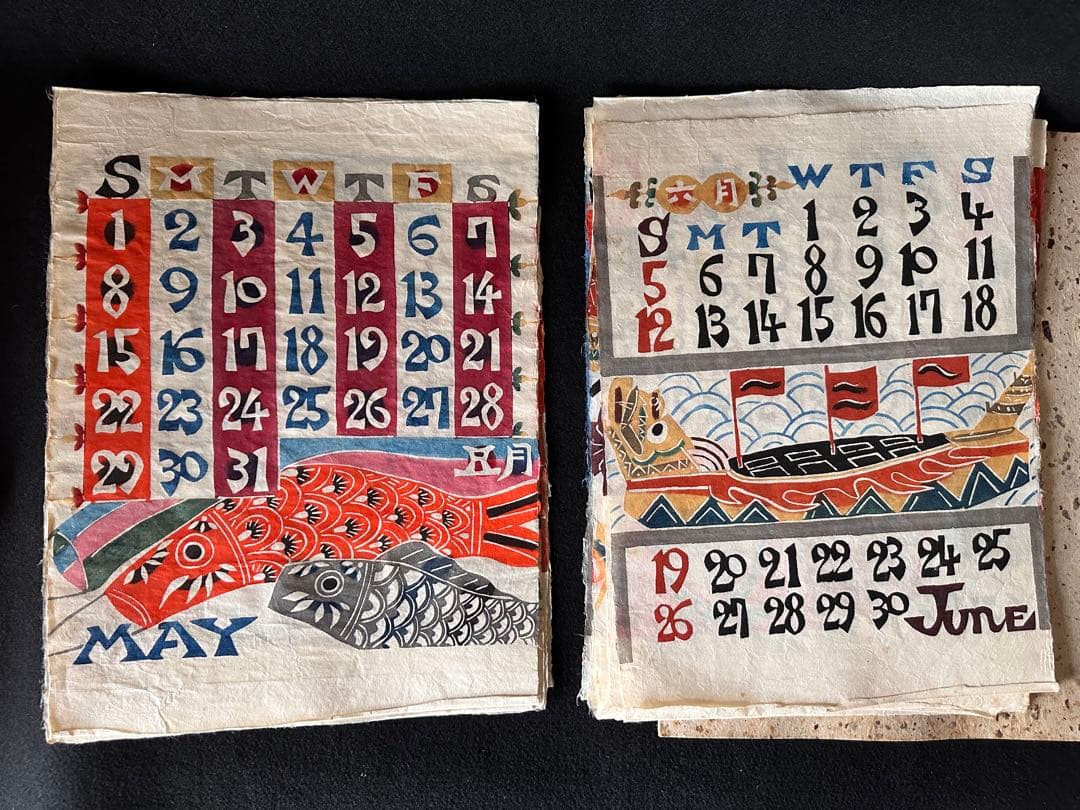 S M T W T F S
1 2 3 4 5 6 7
8 9 10 11 12 13 14
15 16 17 18 19 20 21
22 23 24 25 26 27 28
29 30 31
五月
MAY
六月 W T F S
1 2 3 4
S M T
5 6 7 8 9 10 11
12 13 14 15 16 17 18
19 20 21 22 23 24 25
26 27 28 29 30 JUNE